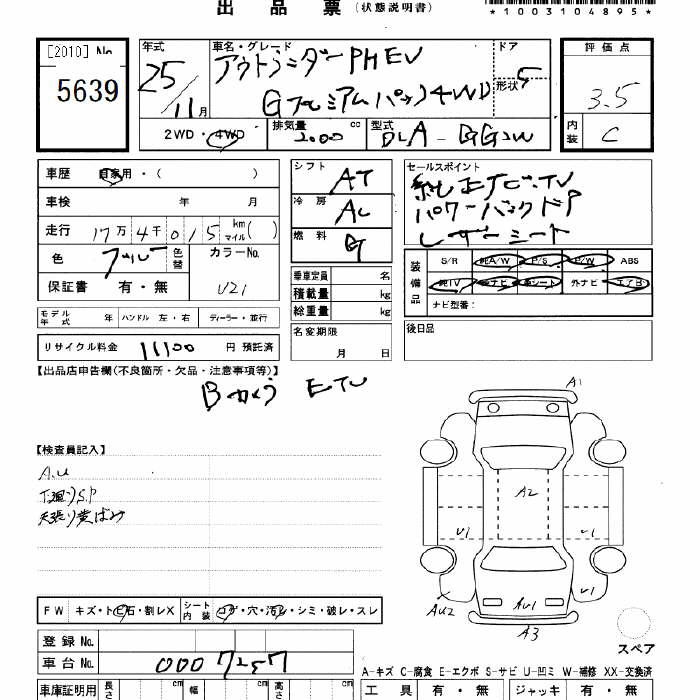 出品票(状態説明書)
*1003104895*
[2010] No.
5639
年式 25/11月
車名・グレード アウトランダーPHEV
Gプレミアムパック4WD
ドア 5
形状
評価点 3.5
内装 C
2WD・4WD 排気量 2000 cc 型式 DLA-GG2W
車歴 自家用・( )
車検 年 月
走行 17万4千015 km マイル( )
色 ブルー 色替 カラーNo. U21
保証書 有・無
シフト AT
冷房 AC
燃料 G
乗車定員 名
積載量 kg
総重量 kg
セールスポイント
純正ナビ.TV
パワーバックドア
レザーシート
装備品 S/R 純A/W P/S P/W ABS
純TV 純ナビ 革シート 外ナビ エアB
ナビ型番:
モデル年式 年 ハンドル 左・右 ディーラー・並行
名変期限 月 日
後日品
リサイクル料金 11100 円 預託済
【出品店申告欄(不良箇所・欠品・注意事項等)】
Bカメラ ETC
【検査員記入】
A.U
下廻りS.P
天張り黄ばみ
A1
A2
U1 U1
U1
AU2 AU1
A3
スペア
FW キズ・トビ石・割レX シート内装 コゲ・穴・汚レ・シミ・破レ・スレ
登録 No.
車台 No. 0007257
A-キズ C-腐食 E-エクボ S-サビ U-凹ミ W-補修 XX-交換済
車庫証明用 長さ cm 幅 cm 高さ cm 工具 有・無 ジャッキ 有・無